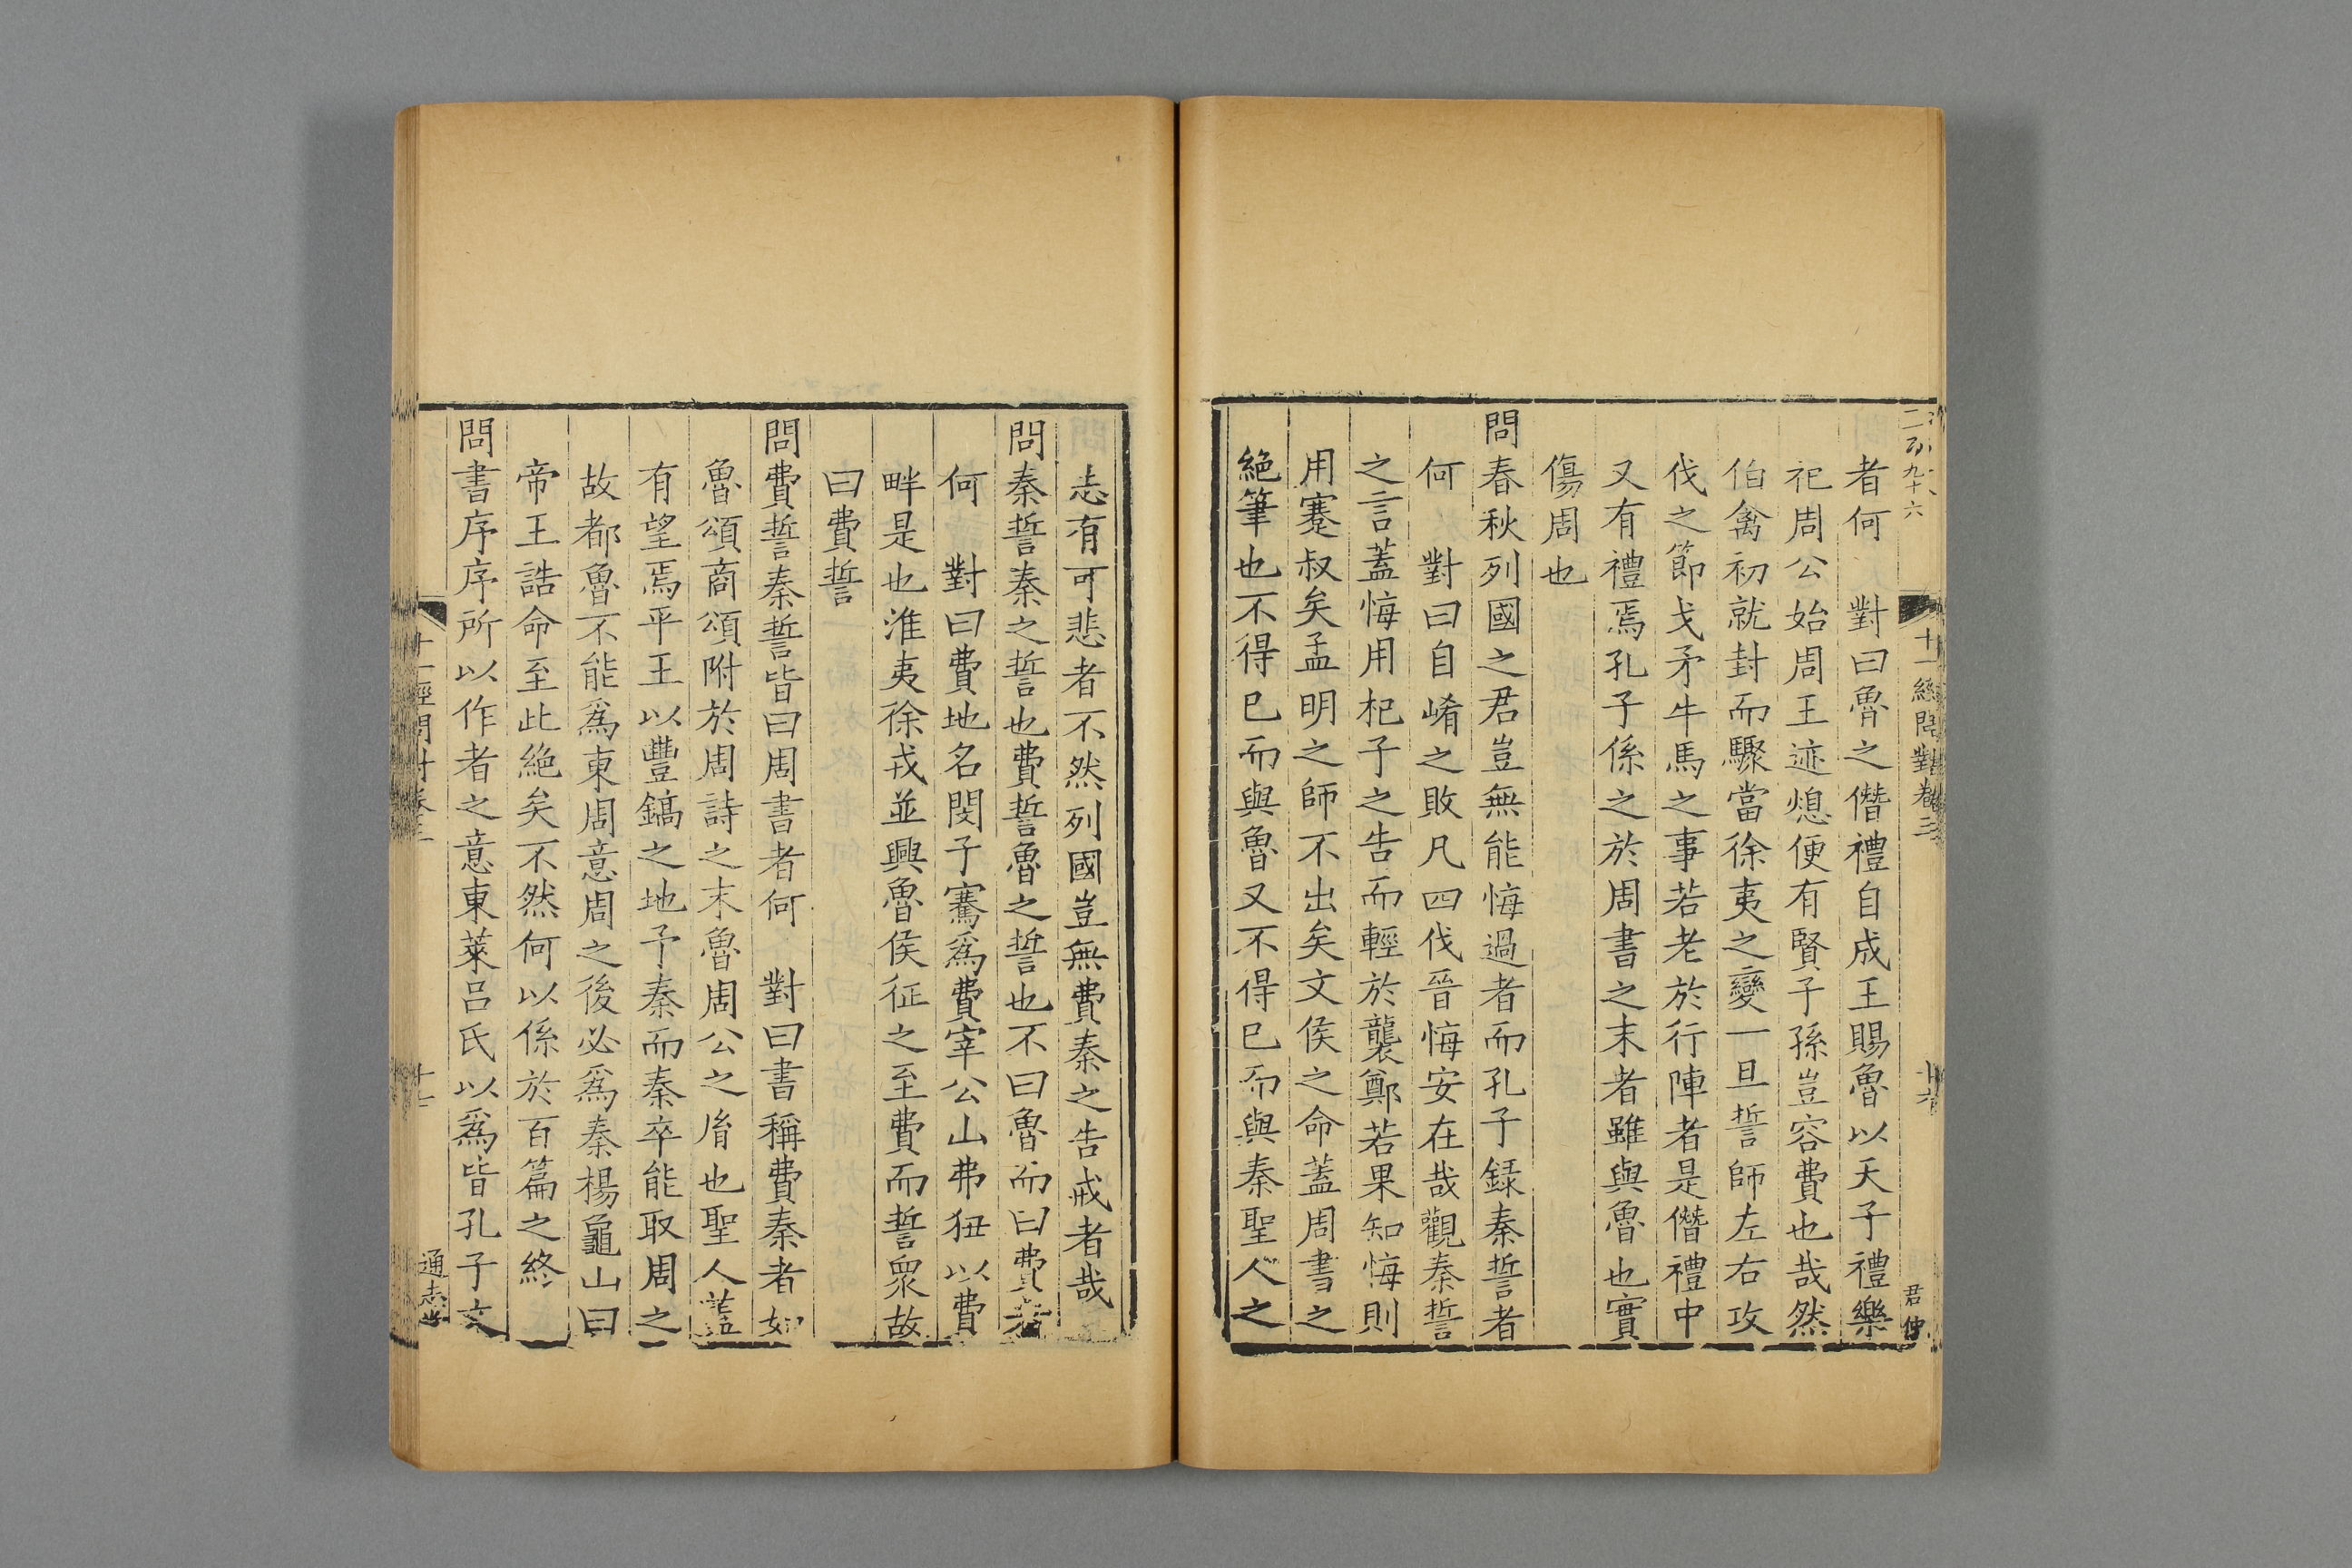 二百九十六
十一經問對卷三
十六
君仲
者何　對曰魯之僭禮自成王賜魯以天子禮樂
祀周公始周王迹熄便有賢子孫豈容費也哉然
伯禽初就封而驟當徐夷之變一旦誓師左右攻
伐之節戈矛牛馬之事若老於行陣者是僭禮中
又有禮焉孔子係之於周書之末者雖與魯也實
傷周也
問春秋列國之君豈無能悔過者而孔子録秦誓者
何　對曰自崤之敗凡四伐晉悔安在哉觀秦誓
之言蓋悔用杞子之告而輕於襲鄭若果知悔則
用蹇叔矣孟明之師不出矣文侯之命蓋周書之
絕筆也不得已而與魯又不得已而與秦聖人之
志有可悲者不然列國豈無費秦之告戒者哉
問秦誓秦之誓也費誓魯之誓也不曰魯而曰費者
何　對曰費地名閔子騫爲費宰公山弗狃以費
畔是也淮夷徐戎並興魯侯征之至費而誓眾故
曰費誓
問費誓秦誓皆曰周書者何　對曰書稱費秦者如
魯頌商頌附於周詩之末魯周公之胤也聖人蓋
有望焉平王以豐鎬之地予秦而秦卒能取周之
故都魯不能爲東周意周之後必爲秦楊龜山曰
帝王誥命至此絕矣不然何以係於百篇之終
問書序序所以作者之意東萊呂氏以爲皆孔子文
十一經問對卷三
十七
通志堂